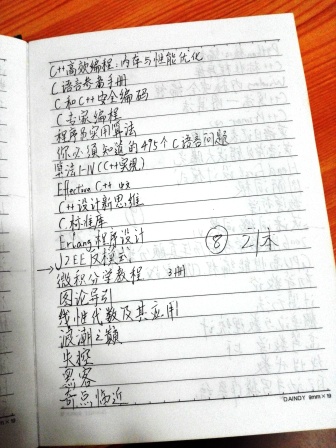 C++高效编程:内存与性能优化
C语言参考手册
C和C++安全编码
C专家编程
程序员实用算法
你必须知道的495个C语言问题
算法I-IV(C++实现)
Effective C++
C++设计新思维
C标准库
Erlang程序设计
⑧ 21本
→J2EE反模式
微积分学教程 3册
图论导引
线性代数及其应用
浪潮之巅
失控
黑客
奇点临近
DAINDY 9mm×18